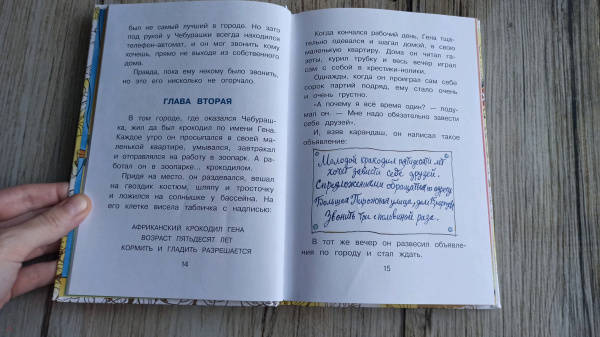 был не самый лучший в городе. Но зато
под рукой у Чебурашки всегда находился
телефон-автомат, и он мог звонить кому
хочешь, прямо не выходя из собственного
дома.
Правда, пока ему некому было звонить,
но это его нисколько не огорчало.
ГЛАВА ВТОРАЯ
В том городе, где оказался Чебураш-
ка, жил да был крокодил по имени Гена.
Каждое утро он просыпался в своей ма-
ленькой квартире, умывался, завтракал
и отправлялся на работу в зоопарк. А ра-
ботал он в зоопарке... крокодилом.
Придя на место, он раздевался, вешал
на гвоздик костюм, шляпу и тросточку
и ложился на солнышке у бассейна. На
его клетке висела табличка с надписью:
АФРИКАНСКИЙ КРОКОДИЛ ГЕНА
ВОЗРАСТ ПЯТЬДЕСЯТ ЛЕТ
КОРМИТЬ И ГЛАДИТЬ РАЗРЕШАЕТСЯ
14
Когда кончался рабочий день, Гена тща-
тельно одевался и шагал домой, в свою
маленькую квартиру. Дома он читал га-
зеты, курил трубку и весь вечер играл
сам с собой в крестики-нолики.
Однажды, когда он проиграл сам себе
сорок партий подряд, ему стало очень
и очень грустно.
«А почему я всё время один? — поду-
мал он. — Мне надо обязательно завести
себе друзей».
И, взяв карандаш, он написал такое
объявление:
Молодой крокодил пятидести лет
хочет зависти себе друзей.
С предложениями обращаться по адресу:
Большая Пирожная улица, дом
Звонить три с половиной раза.
В тот же вечер он развесил объявле-
ния по городу и стал ждать.
15